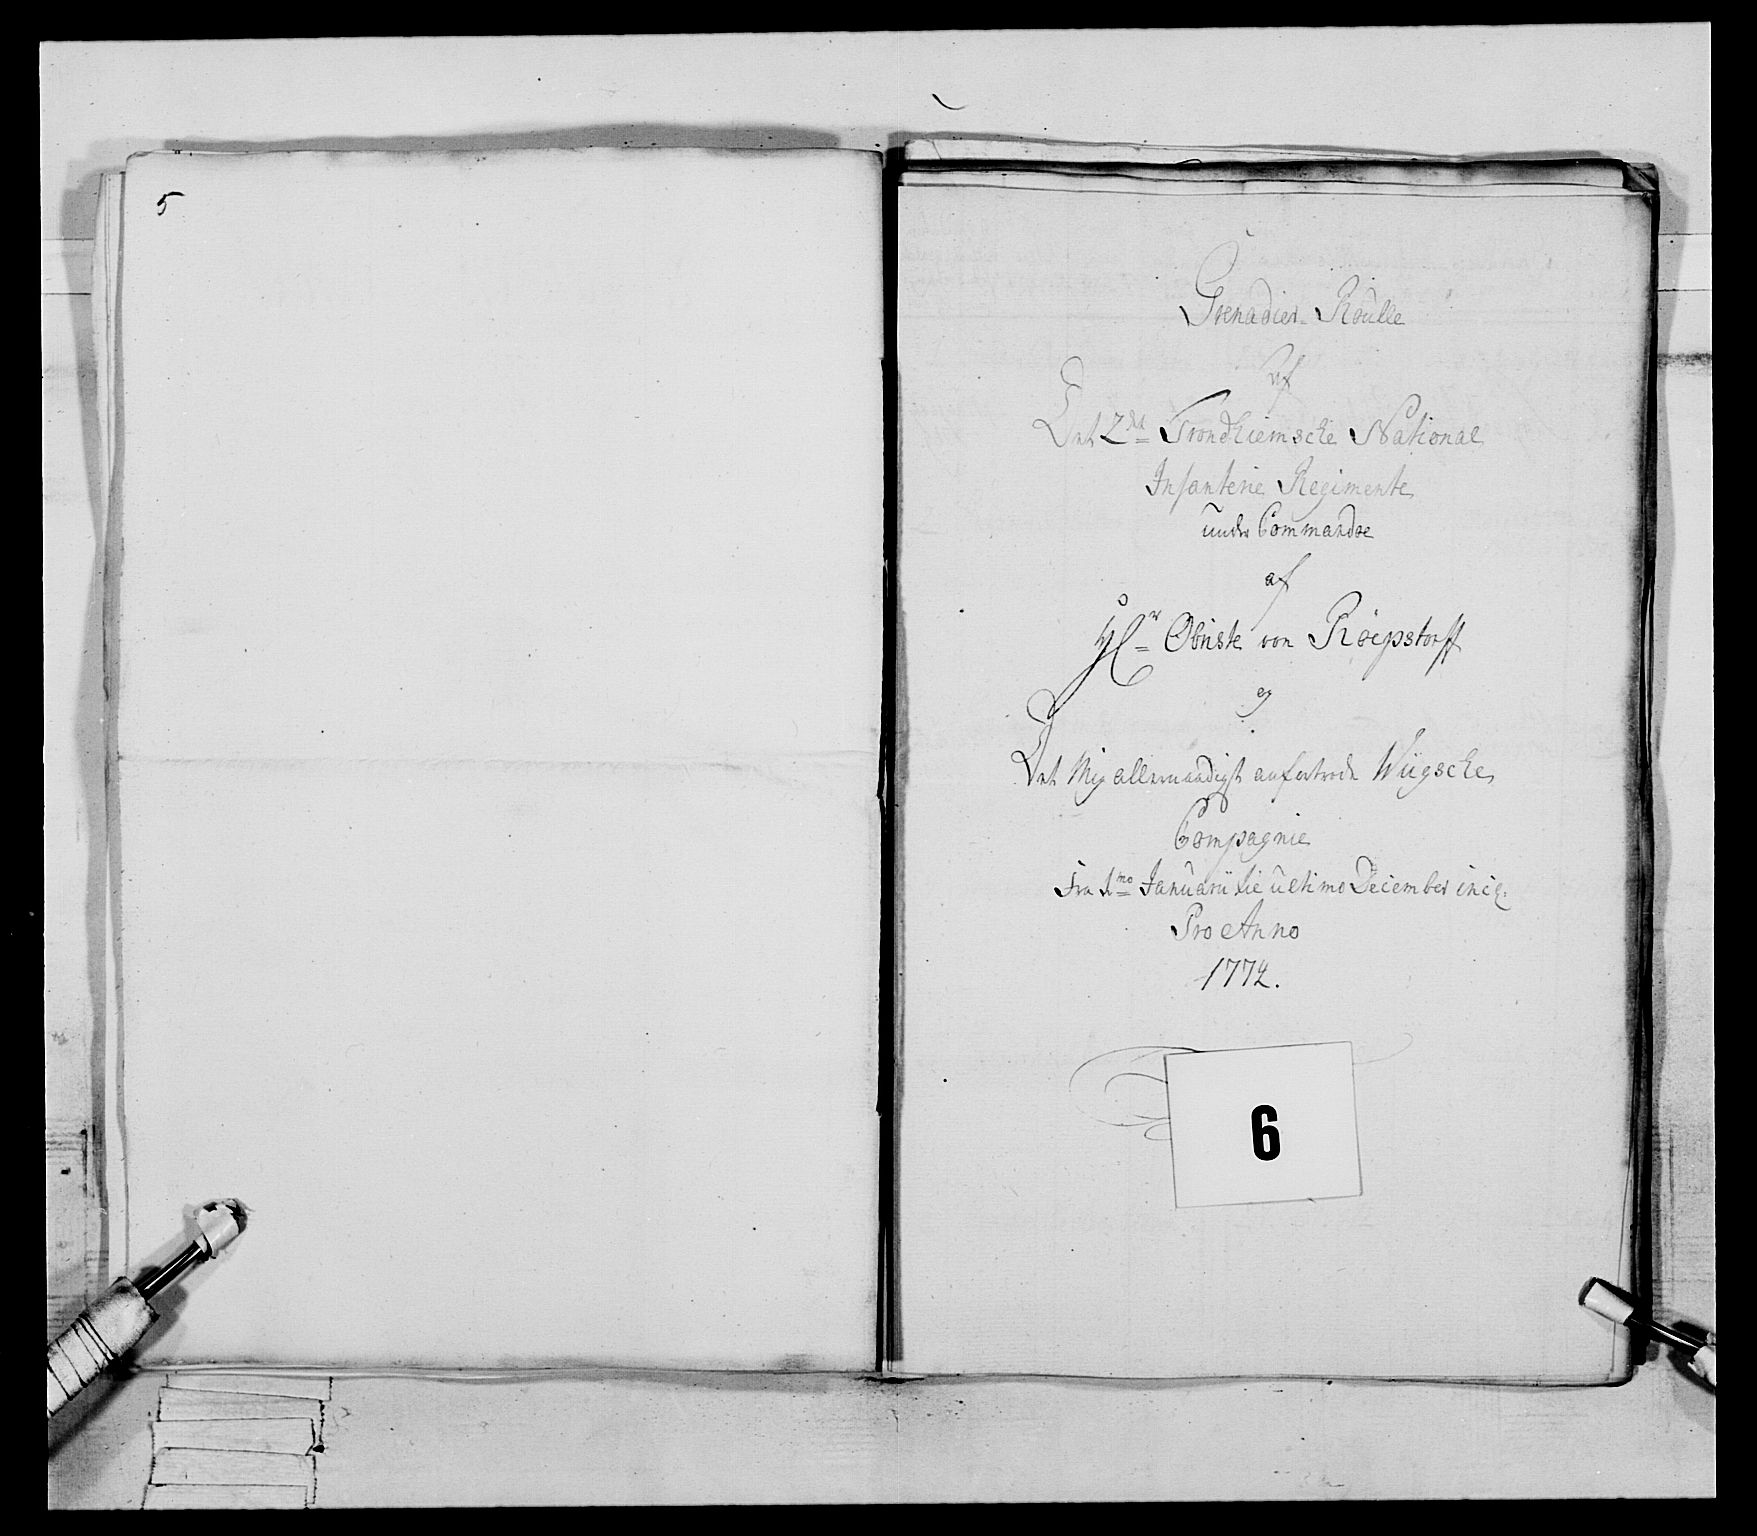 5
Grenadier-Roulle
Af
Det 2det Trondhiemsche National
Infanterie Regimente
under Commandoe
af
Hr Obriste von Röepstorff
og
Det Mig allernaadigst anfortroede Wügsche
Compagnie
fra 1mo Januarii tie ultimo December incl:
Pro Anno
1772.
6